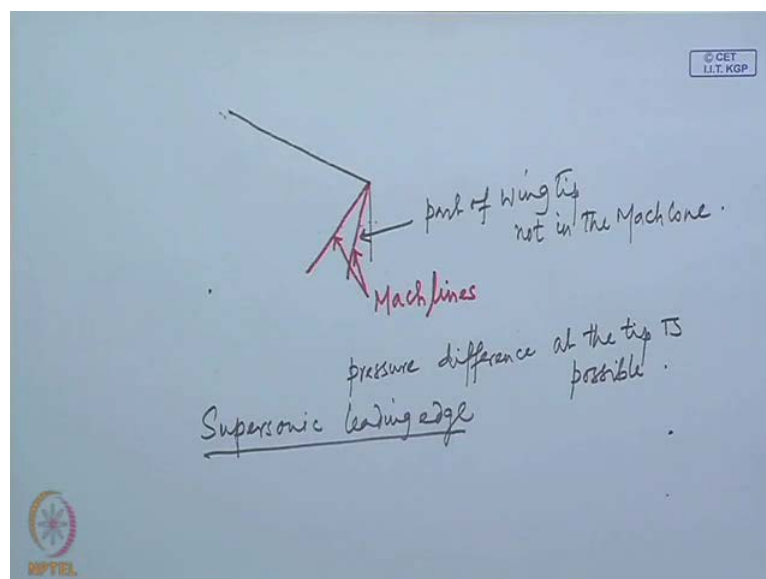 © CET
I.I.T. KGP
part of wing tip
not in the Mach Cone.
Mach lines
pressure difference at the tip is
possible.
Supersonic leading edge
NPTEL